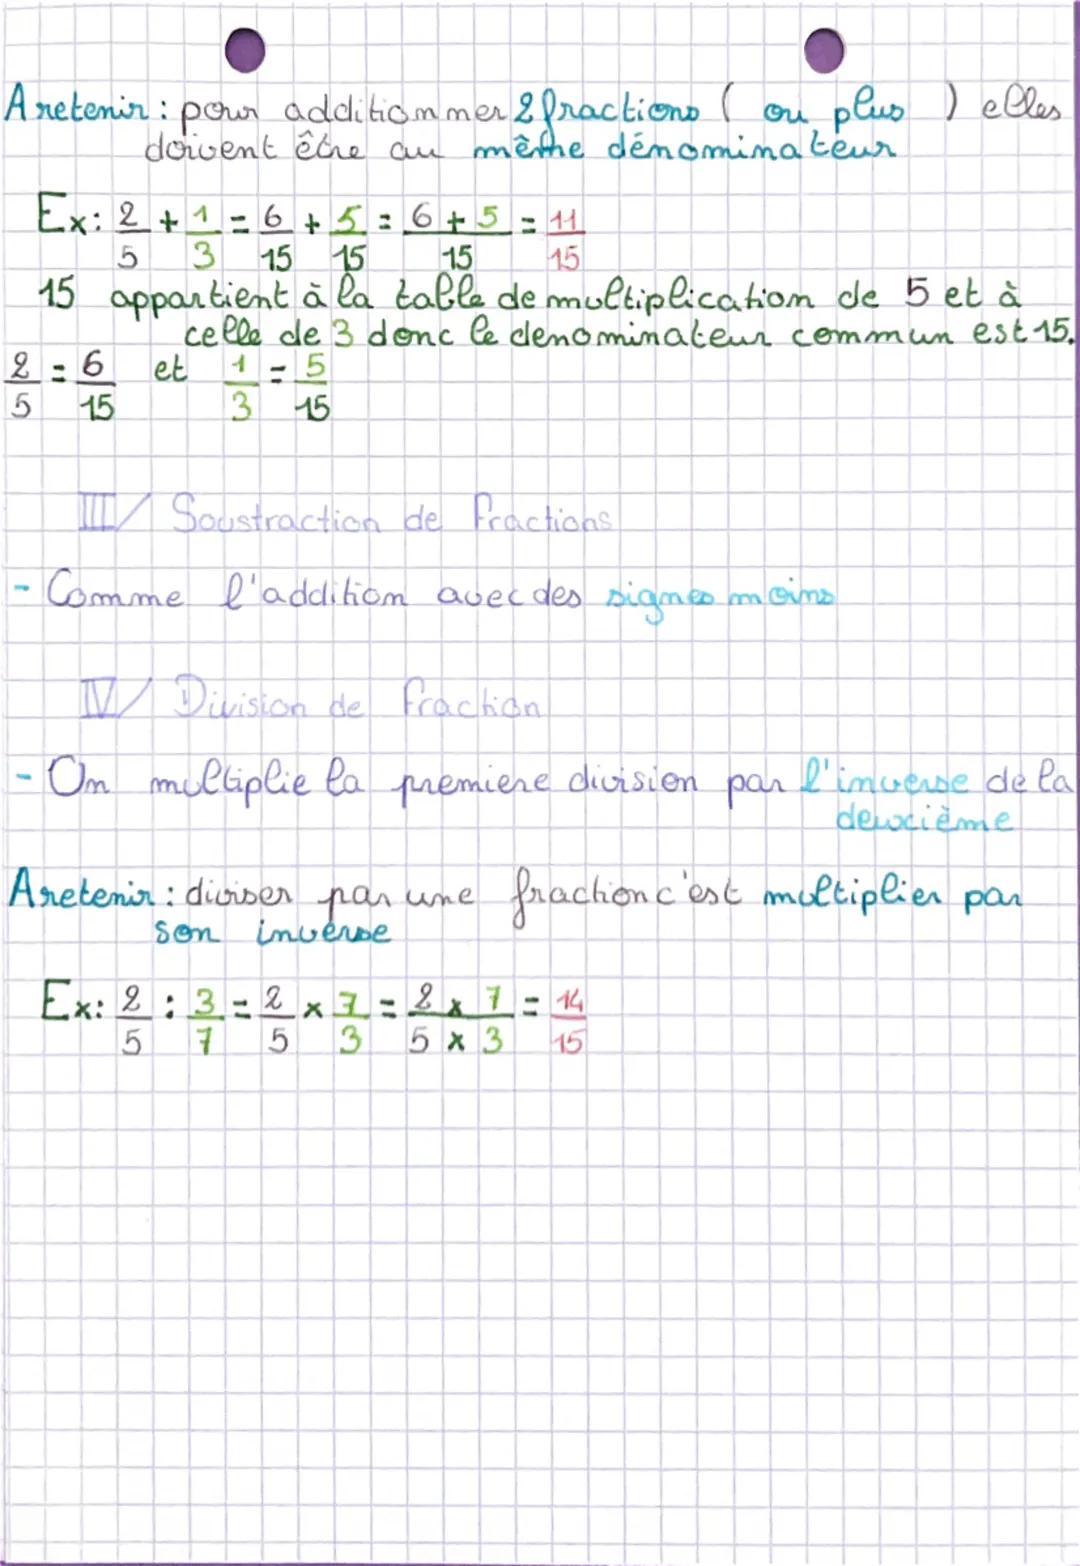 A retenir : pour additionner 2 fractions ( ou plus ) elles
doivent être au même dénominateur
Ex: 2/5 + 1/3 = 6/15 + 5/15 = (6 + 5)/15 = 11/15
15 appartient à la table de multiplication de 5 et à
celle de 3 donc le denominateur commun est 15.
2/5 = 6/15 et 1/3 = 5/15
III/ Soustraction de fractions
- Comme l'addition avec des signes moins
IV/ Division de fraction
- On multiplie la premiere division par l'inverse de la
deuxième
A retenir : diviser par une fraction c'est multiplier par
son inverse
Ex: 2/5 : 3/7 = 2/5 x 7/3 = (2 x 7)/(5 x 3) = 14/15